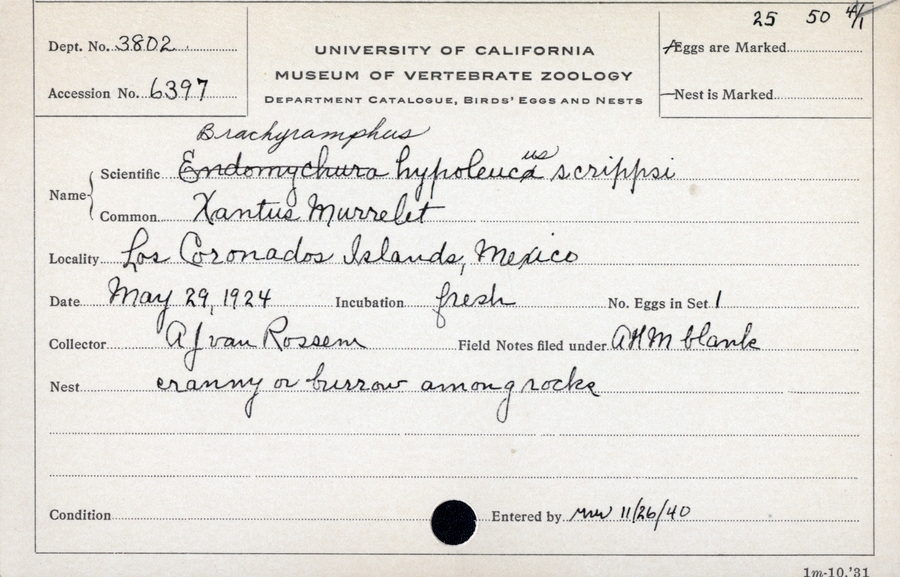 25 50 4/1
Dept. No. 3802
UNIVERSITY OF CALIFORNIA
MUSEUM OF VERTEBRATE ZOOLOGY
DEPARTMENT CATALOGUE, BIRDS' EGGS AND NESTS
Accession No. 6397
Eggs are Marked
Nest is Marked
Brachyramphus
Name Scientific Endomychura hypoleuca us scrippsi
Common Xantus Murrelet
Locality Los Coronados Islands, Mexico
Date May 29, 1924 Incubation fresh No. Eggs in Set 1
Collector A J van Rossem Field Notes filed under AHM blank
Nest cranny or burrow among rocks
Condition Entered by 11/26/40
1m-10,'31